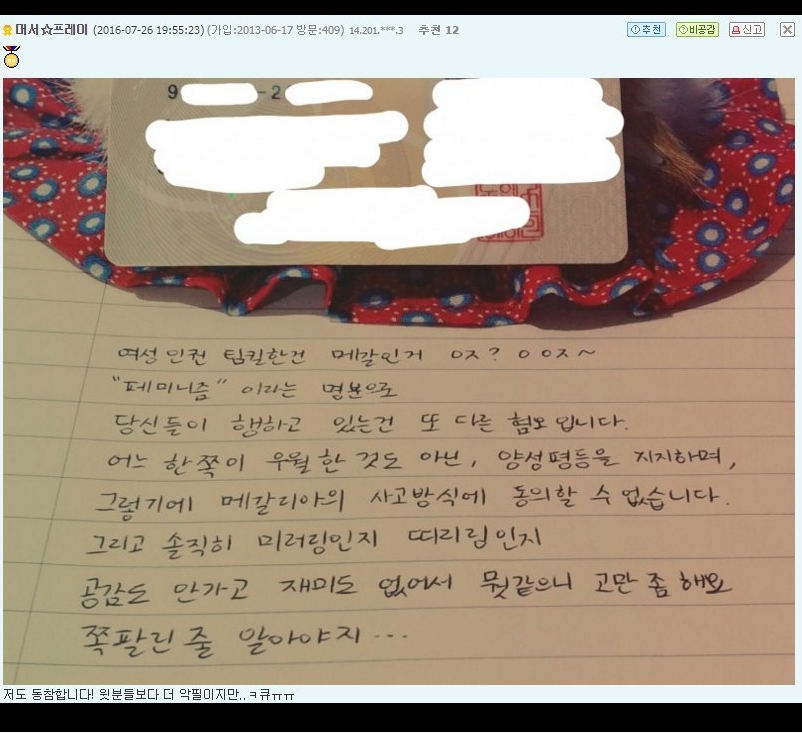 대서☆프레이 (2016-07-26 19:55:23) (가입:2013-06-17 방문:409) 14.201.***.3 추천 12 추천 비공감 신고
9 - 2
여성인권 팀킬한건 메갈인거 ㅇㅈ? ㅇㅇㅈ~
"페미니즘" 이라는 명분으로
당신들이 행하고 있는건 또 다른 혐오입니다.
어느 한쪽이 우월한 것도 아닌, 양성평등을 지지하며,
그렇기에 메갈리아의 사고방식에 동의할 수 없습니다.
그리고 솔직히 미러링인지 띠리링인지
공감도 안가고 재미도 없어서 뭣같으니 고만좀해요
쪽팔린 줄 알아야지...
저도 동참합니다! 윗분들보다 더 악필이지만..ㅋ큐ㅠㅠ